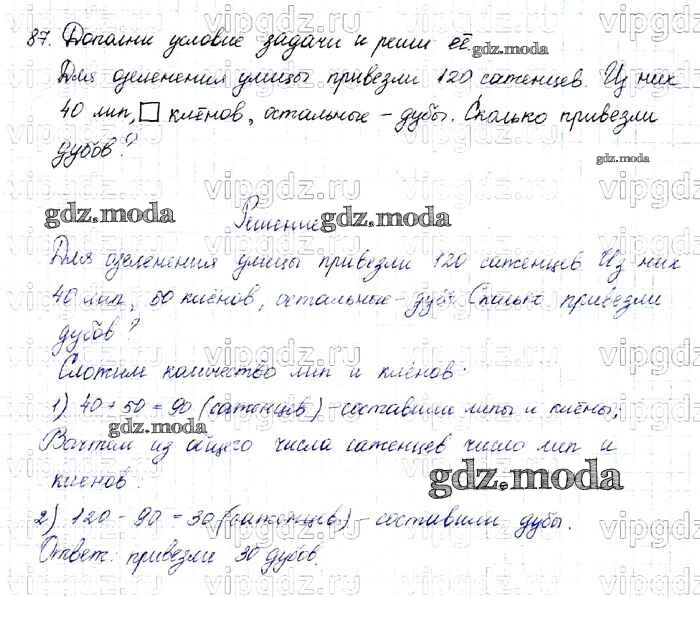 87. Дополни условие задачи и реши её.
Для озеленения улицы привезли 120 саженцев. Из них
40 лип, □ клёнов, остальные - дубы. Сколько привезли
дубов?
Решение
Для озеленения улицы привезли 120 саженцев. Из них
40 лип, 50 клёнов, остальные - дубы. Сколько привезли
дубов?
Сложим количество лип и клёнов.
1) 40 + 50 = 90 (саженцев) - составили липы и клёны;
Вычтем из общего числа саженцев число лип и
клёнов.
2) 120 - 90 = 30 (саженцев) - составили дубы.
Ответ: привезли 30 дубов.
gdz.moda
gdz.moda
gdz.moda
gdz.moda
gdz.moda
gdz.moda
vipgdz.ru